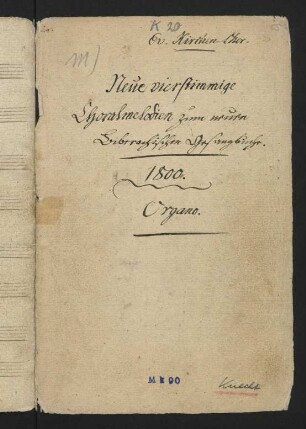 K 20
Ev. Kirchen Chor.
M)
Neue vierstimmige
Choralmelodien zum neuen
Biberachischen Gesangbuche.
1800.
Organo.
M k 90
Knecht